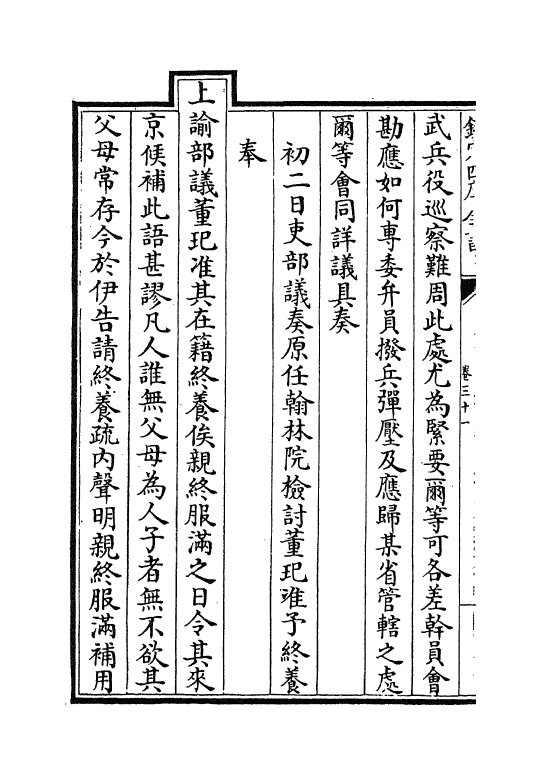 卷三十一
武兵役巡察難周此處尤為緊要爾等可各差幹員會
勘應如何專委弁員撥兵彈壓及應歸某省管轄之處
爾等會同詳議具奏
初二日吏部議奏原任翰林院檢討董玘准予終養
奉
上諭部議董玘准其在籍終養俟親終服滿之日令其來
京候補此語甚謬凡人誰無父母為人子者無不欲其
父母常存今於伊告請終養疏内聲明親終服滿補用